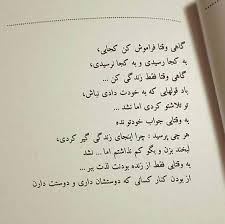 گاهی وقتا فراموش کن کجایی،
به کجا رسیدی و به کجا نرسیدی.
گاهی وقتا فقط زندگی کن ...
یاد قولهایی که به خودت دادی نباش،
تو تلاشتو کردی اما نشد ...
یه وقتایی جواب خودتو نده
هر چی پرسید : چرا اینجای زندگی گیر کردی،
لبخند بزن و بگو کم نذاشتم اما ... نشد
یه وقتایی فقط از زنده بودنت لذت ببر ...
از بودن کنار کسانی که دوستشان داری و دوستت دارن